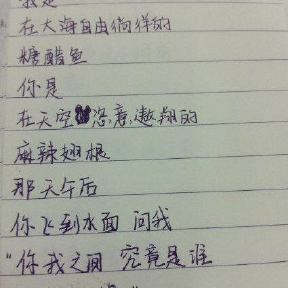 我是
在大海自由徜徉的
糖醋鱼
你是
在天空恣意遨翔的
麻辣翅根
那天午后
你飞到水面 问我
"你我之间 究竟是谁